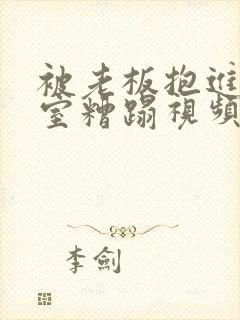 被老板抱进
室糟蹋視頻
李劍